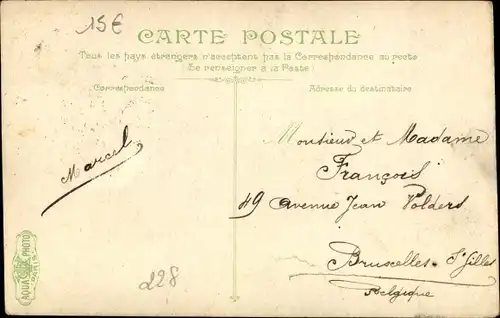 15€
CARTE POSTALE
Tous les pays étrangers n'acceptent pas la Correspondance au recto
(Se renseigner à la Poste)
Correspondance
Adresse du destinataire
Marcel
Monsieur et Madame
François
49 avenue Jean Volders
Bruxelles. St Gilles
Belgique
AQUA PHOTO
PARIS
228